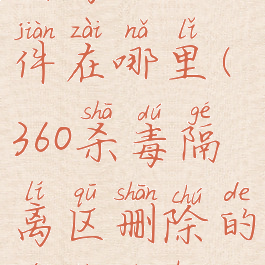 jiàn zài nǎ lǐ
件在哪里(
shā dú gé
360杀毒隔
lí qū shān chú de
离区删除的